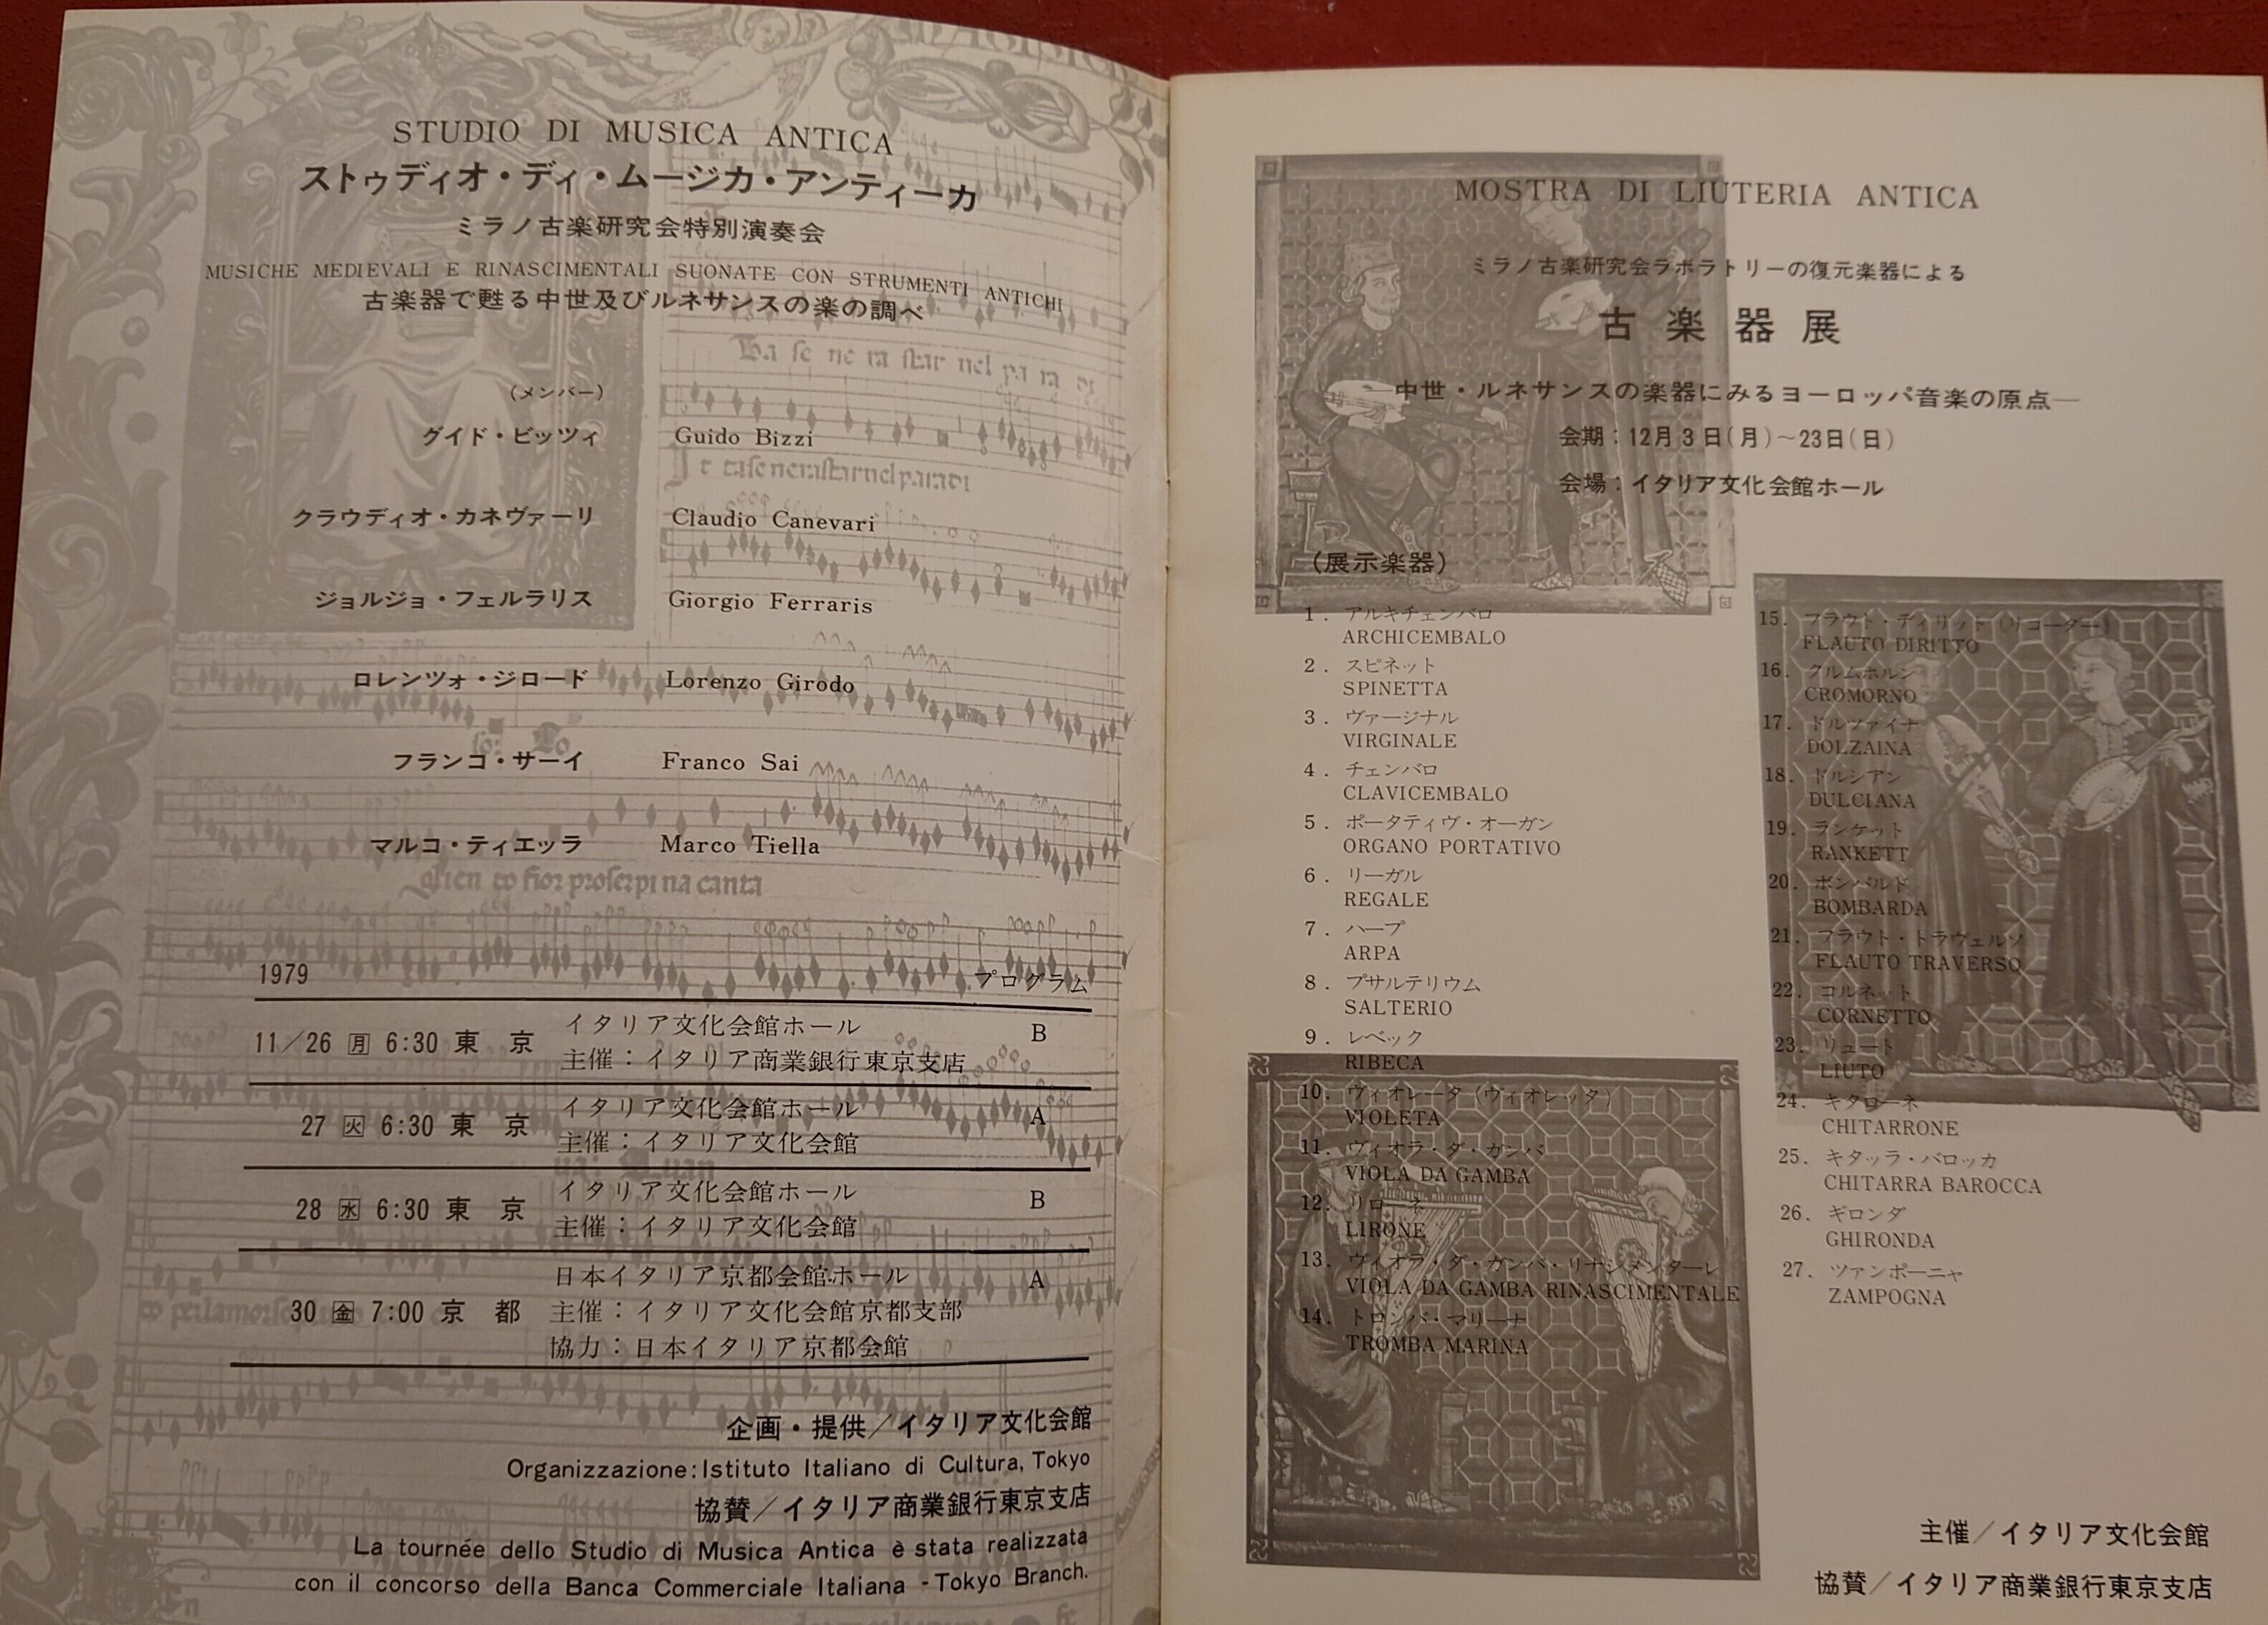 STUDIO DI MUSICA ANTICA
ストゥディオ・ディ・ムージカ・アンティーカ
ミラノ古楽研究会特別演奏会
MUSICHE MEDIEVALI E RINASCIMENTALI SUONATE CON STRUMENTI ANTICHI
古楽器で甦る中世及びルネサンスの楽の調べ
(メンバー)
グイド・ビッツィ Guido Bizzi
クラウディオ・カネヴァーリ Claudio Canevari
ジョルジョ・フェルラリス Giorgio Ferraris
ロレンツォ・ジロード Lorenzo Girodo
フランコ・サーイ Franco Sai
マルコ・ティエッラ Marco Tiella
1979 プログラム
11/26 月 6:30 東京 イタリア文化会館ホール B
主催：イタリア商業銀行東京支店
27 火 6:30 東京 イタリア文化会館ホール A
主催：イタリア文化会館
28 水 6:30 東京 イタリア文化会館ホール B
主催：イタリア文化会館
30 金 7:00 京都 日本イタリア京都会館ホール A
主催：イタリア文化会館京都支部
協力：日本イタリア京都会館
企画・提供／イタリア文化会館
Organizzazione: Istituto Italiano di Cultura, Tokyo
協賛／イタリア商業銀行東京支店
La tournée dello Studio di Musica Antica è stata realizzata
con il concorso della Banca Commerciale Italiana - Tokyo Branch.
MOSTRA DI LIUTERIA ANTICA
ミラノ古楽研究会ラボラトリーの復元楽器による
古楽器展
中世・ルネサンスの楽器にみるヨーロッパ音楽の原点—
会期：12月3日(月)〜23日(日)
会場：イタリア文化会館ホール
(展示楽器)
1. アルキチェンバロ
ARCHICEMBALO
2. スピネット
SPINETTA
3. ヴァージナル
VIRGINALE
4. チェンバロ
CLAVICEMBALO
5. ポータティヴ・オーガン
ORGANO PORTATIVO
6. リーガル
REGALE
7. ハープ
ARPA
8. プサルテリウム
SALTERIO
9. レベック
RIBECA
10. ヴィオレータ (ヴィオレッタ)
VIOLETA
11. ヴィオラ・ダ・ガンバ
VIOLA DA GAMBA
12. リローネ
LIRONE
13. ヴィオラ・ダ・ガンバ・リナシメンターレ
VIOLA DA GAMBA RINASCIMENTALE
14. トロンバ・マリーナ
TROMBA MARINA
15. フラウト・ディリット (リコーダー)
FLAUTO DIRITTO
16. クルムホルン
CROMORNO
17. ドルツァイナ
DOLZAINA
18. ドルシアン
DULCIANA
19. ランケット
RANKETT
20. ボンバルド
BOMBARDA
21. フラウト・トラヴェルソ
FLAUTO TRAVERSO
22. コルネット
CORNETTO
23. リュート
LIUTO
24. キタローネ
CHITARRONE
25. キタッラ・バロッカ
CHITARRA BAROCCA
26. ギロンダ
GHIRONDA
27. ツァンポーニャ
ZAMPOGNA
主催／イタリア文化会館
協賛／イタリア商業銀行東京支店